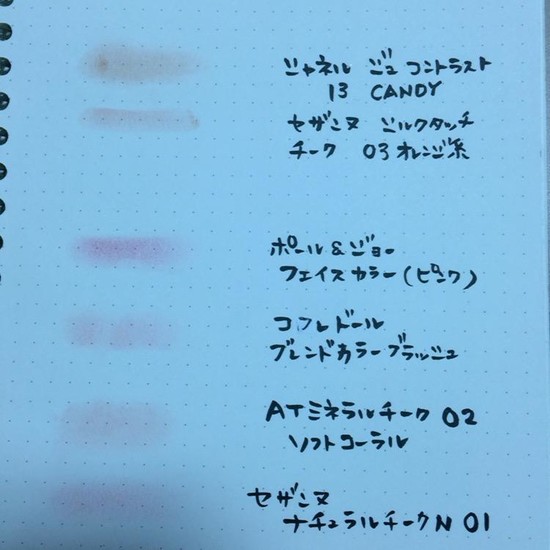 シャネル ジュ コントラスト
13 CANDY
セザンヌ ミルクタッチ
チーク 03 オレンジ系
ポール&ジョー
フェイスカラー(ピンク)
コフレドール
ブレンドカラーブラッシュ
ATミネラルチーク 02
ソフトコーラル
セザンヌ
ナチュラルチークN 01